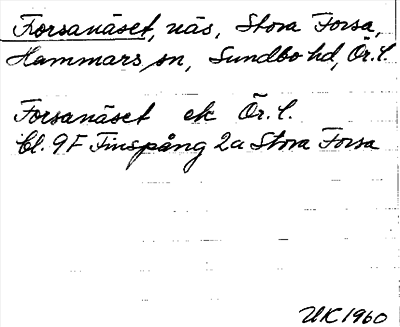 Forsanäset, näs, Stora Forsa,
Hammars sn, Sundbo hd, Ör. l.
Forsanäset ek Ör. l.
bl. 9F Finspång 2a Stora Forsa
UK 1960